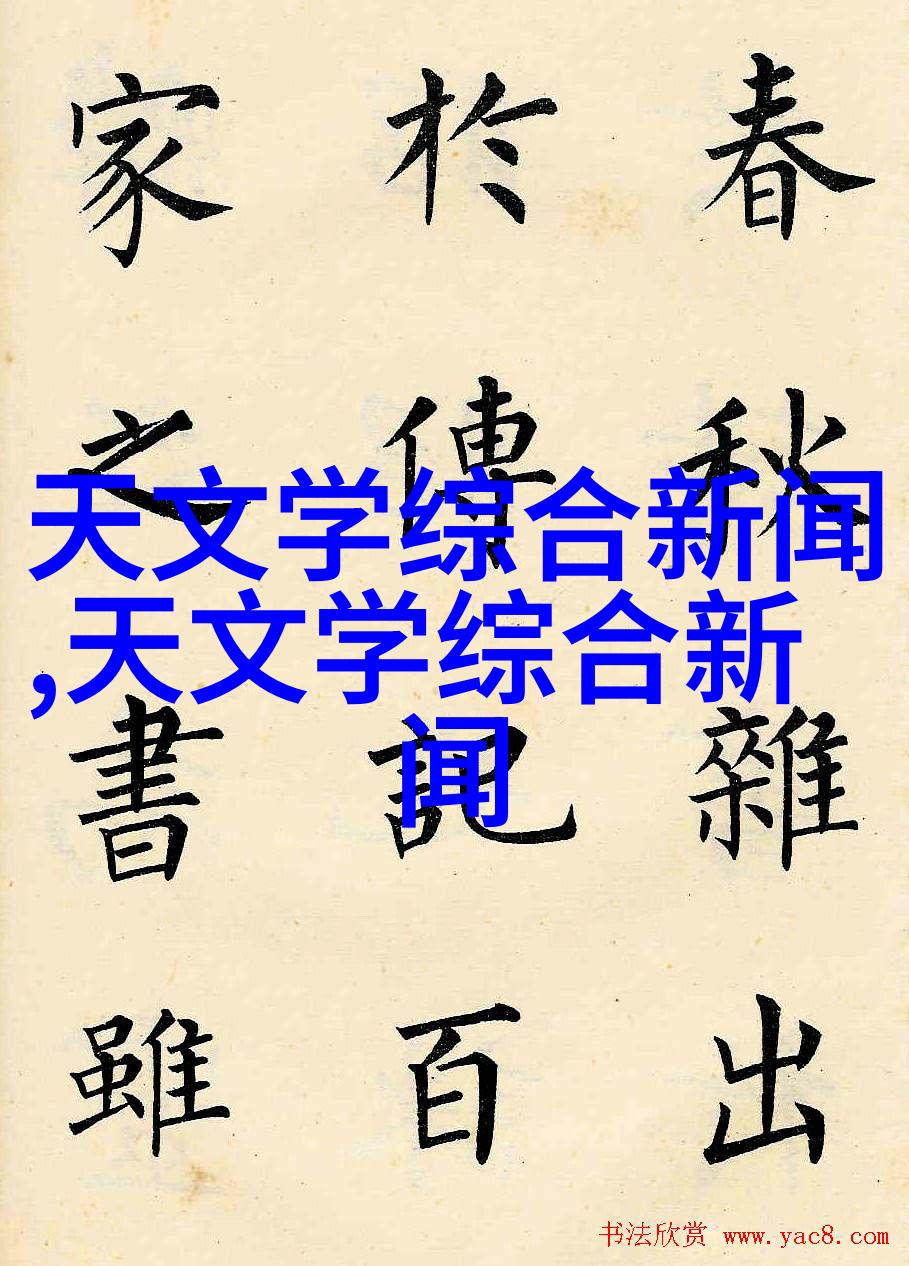 春秋雜出
於傳記百
家之書雖
天文学综合新闻
,天文学综合新
闻
书法欣赏 www.yac8.com